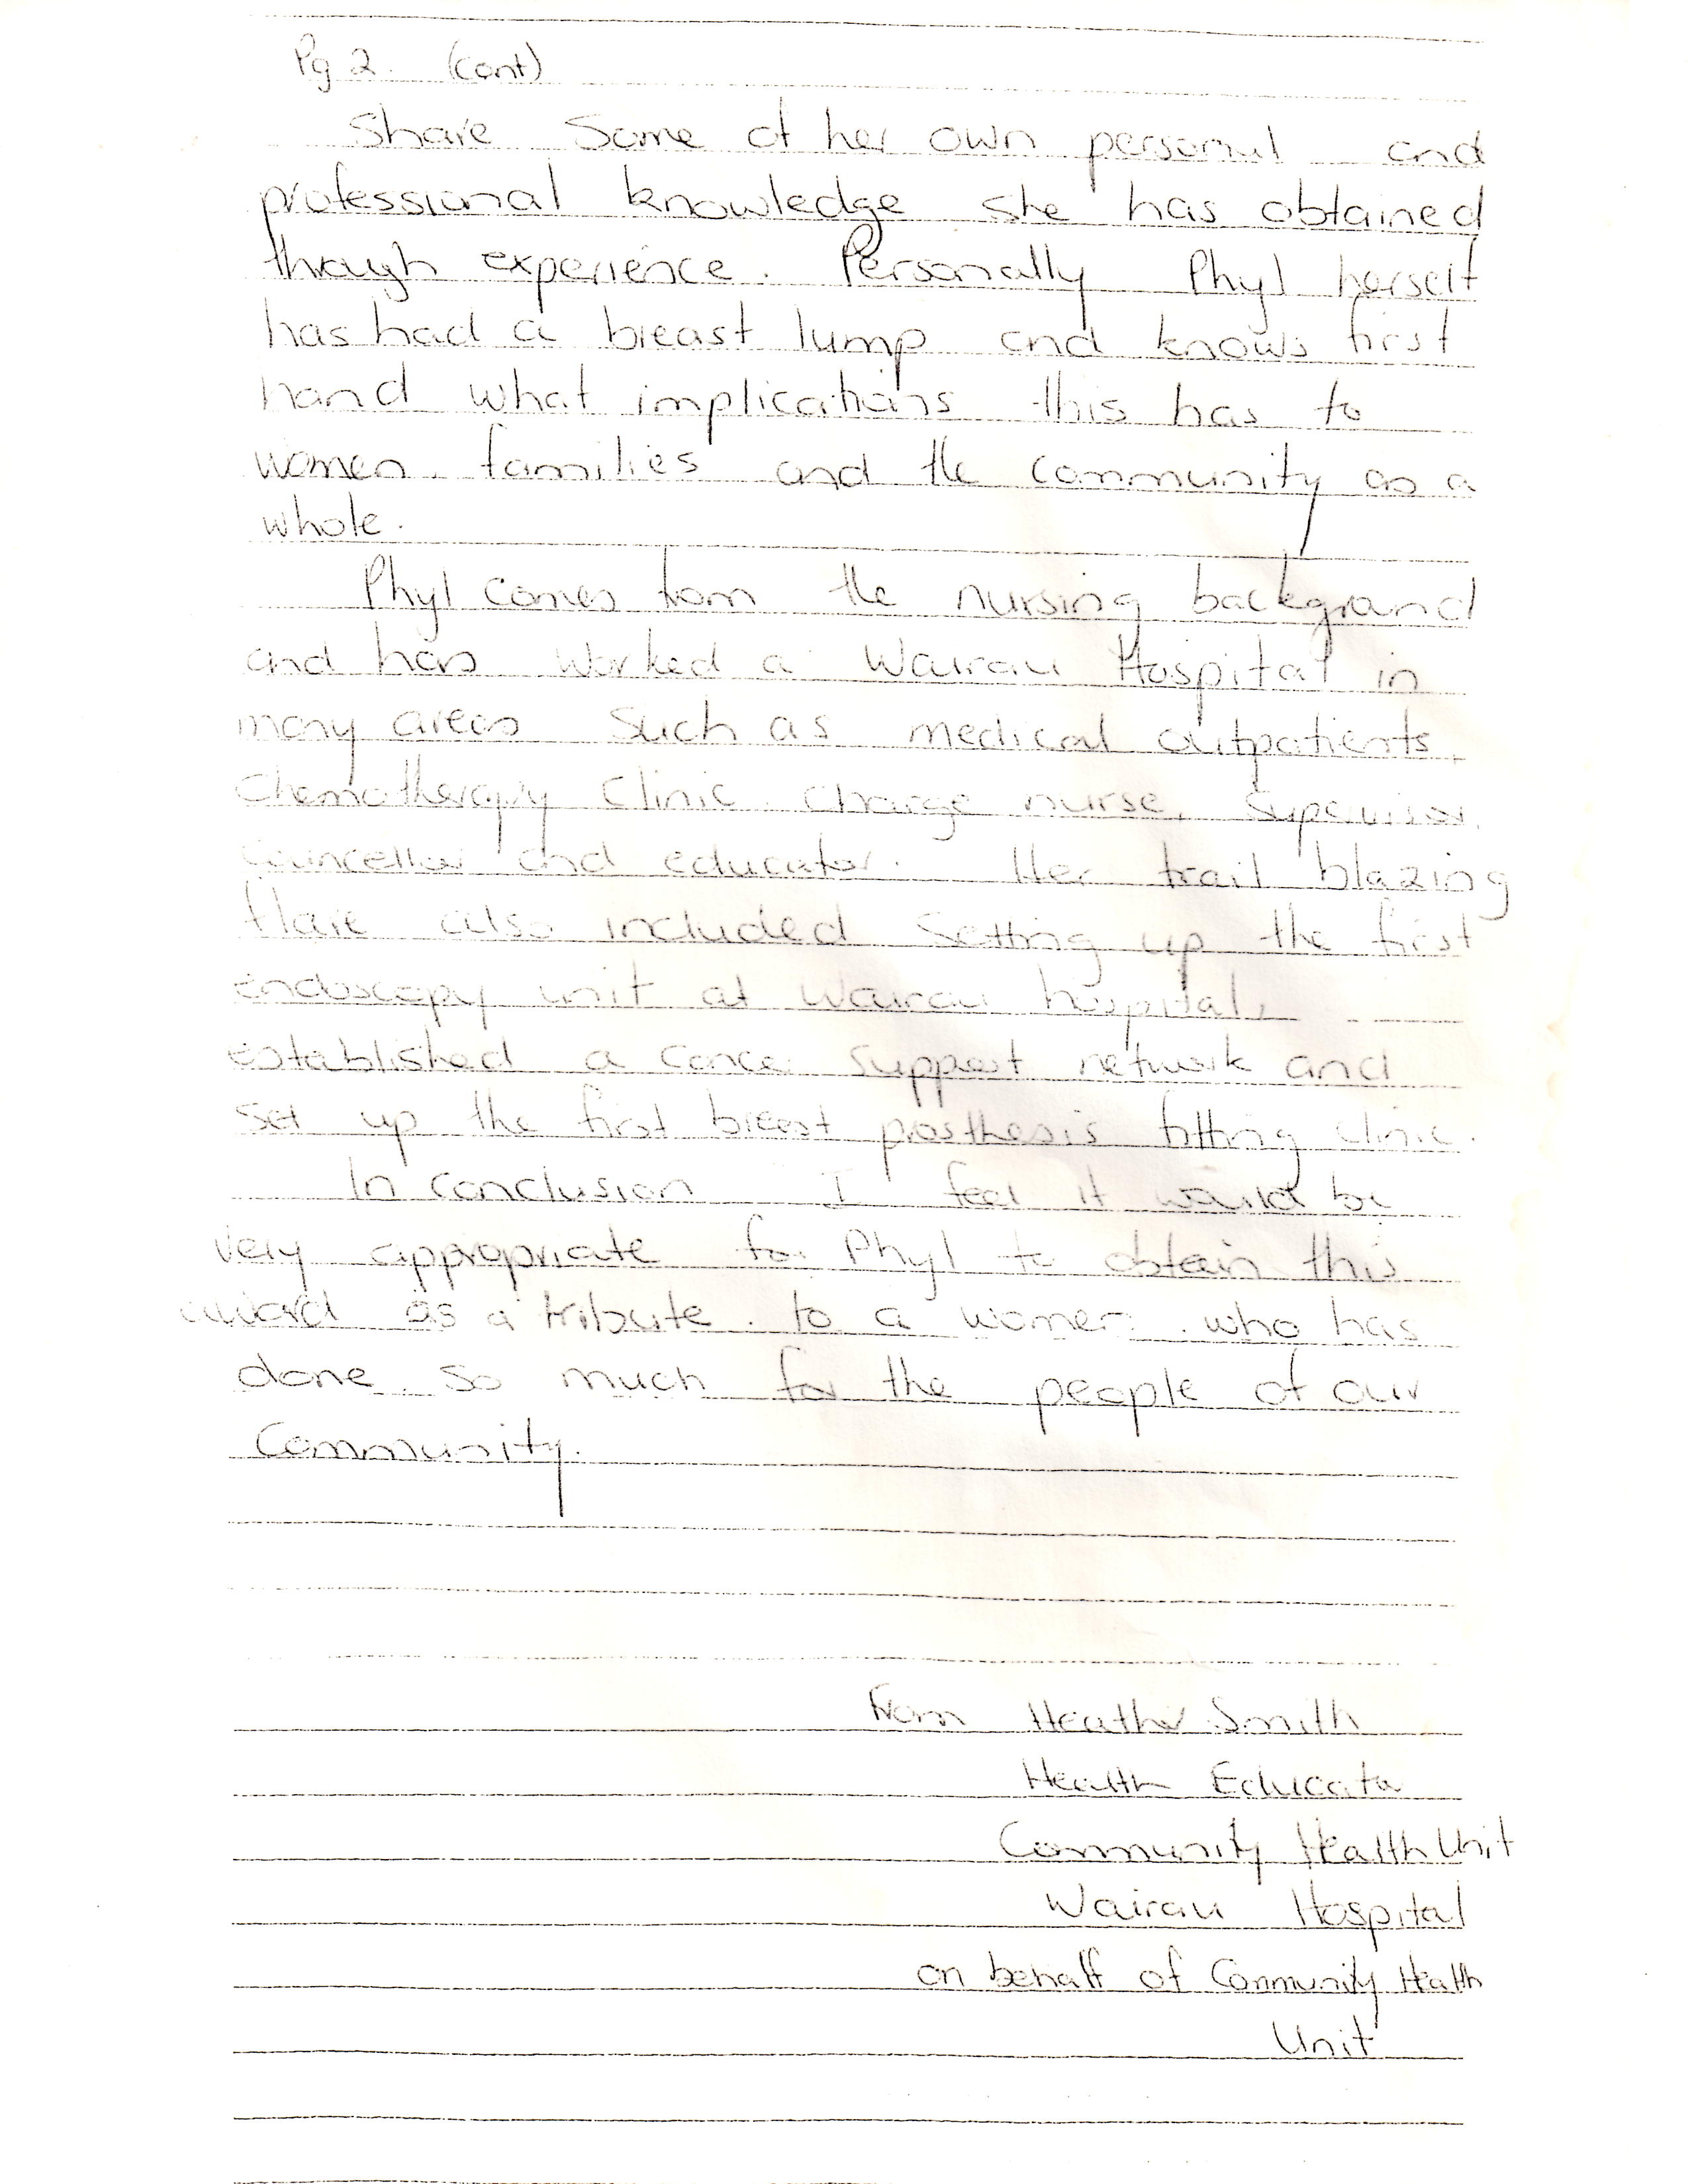 Pg 2. (cont)
Share Some of her own personal and
professional knowledge she has obtained
through experience. Personally Phyl herself
has had a breast lump and knows first
hand what implications this has to
women. families and the community as a
whole.
Phyl comes from the nursing background
and has worked a Wairau Hospital in
many areas Such as medical outpatients,
Chemotherapy Clinic charge nurse, Supervisor,
Councellor and educator. Her trail blazing
flare also included Setting up the first
endoscopy unit at Wairau hospital,
established a cancer support network and
set up the first breast prosthesis fitting clinic.
In conclusion I feel it would be
very appropriate for Phyl to obtain this
award as a tribute. to a women. who has
done so much for the people of our
Community.
From Heather Smith
Health Educator
Community Health Unit
Wairau Hospital
on behalf of Community Health
Unit